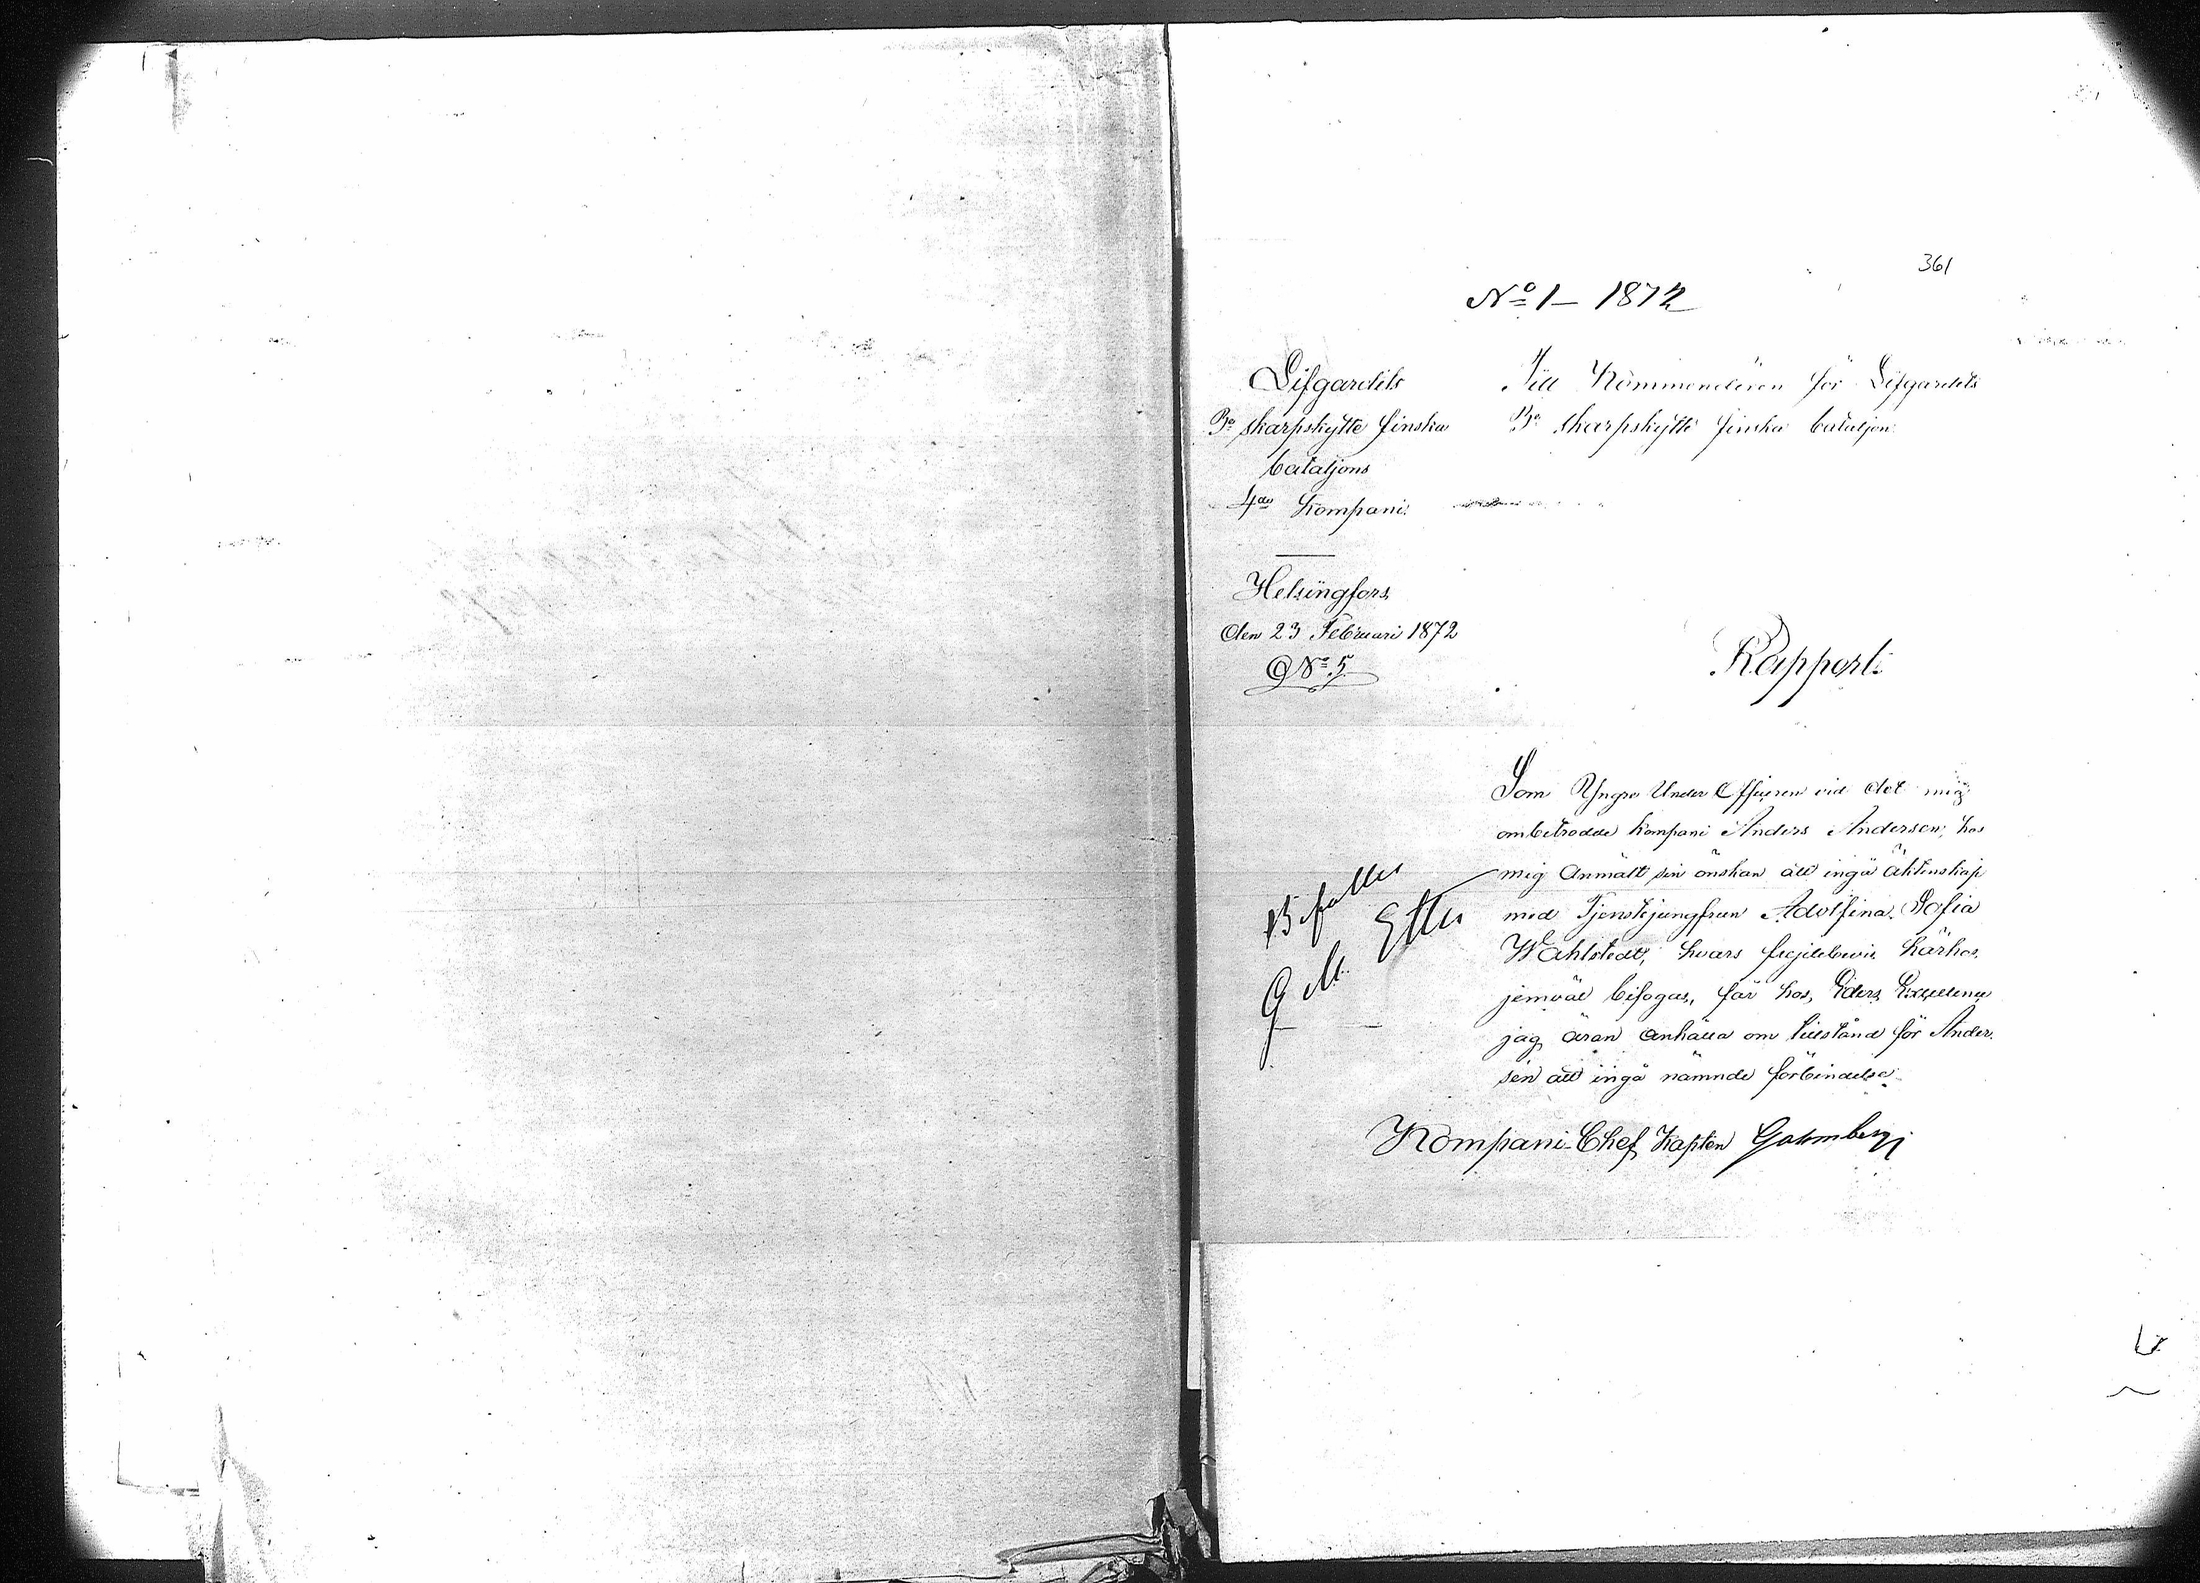 361
No 1 – 1872
Lifgardets
3e skarpskytte finska
bataljons
4de Kompani.
Helsingfors,
den 23 Februari 1872
No 5.
Till Kommendören för Lifgardets
3e skarpskytte finska bataljon.
Rapport.
Som Yngre Under Officeren vid det mig
ombetrodde kompani Anders Anderson, hos
mig anmält sin önskan att ingå äktenskap
med Tjenstejungfrun Adolfina Sofia
Wahlstedt, hvars frejdebevis härhos,
jemväl bifogas, får hos, Eders, Excellence
jag, äran anhålla om tillstånd för Ander-
sen att ingå nämnde förbindelse.
Kompani-Chef, Kapten
Bifalles